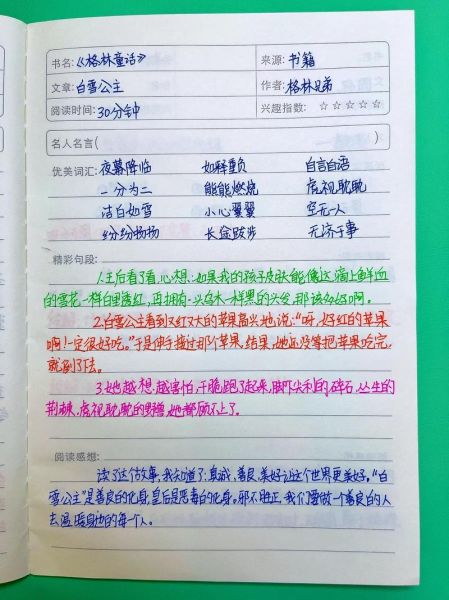 书名:《格林童话》 来源: 书籍
文章: 白雪公主 作者: 格林兄弟
阅读时间: 30分钟 兴趣指数: ☆☆☆☆☆
名人名言( )
优美词汇: 夜幕降临 如释重负 自言自语
一分为二 熊熊燃烧 虎视眈眈
洁白如雪 小心翼翼 空无一人
纷纷扬扬 长途跋涉 无济于事
精彩句段:
1.王后看了看,心想:如果我的孩子皮肤能像这滴上鲜血
的雪花一样白里透红,再拥有一头乌木一样黑的头发,那该多好啊。
2.白雪公主看到又红又大的苹果高兴地说:“呀,好红的苹果
啊!一定很好吃。”于是伸手接过那个苹果,结果,她还没等把苹果吃完,
就倒了下去。
3.她越想越害怕,干脆跑了起来,脚下尖利的碎石,丛生的
荆棘,虎视眈眈的野兽,她都顾不上了。
阅读感想:
读了这个故事,我知道了:真诚、善良、美好让这个世界更美好。“白
雪公主”是善良的化身,皇后是恶毒的化身。邪不胜正,我们要做一个善良的人
去温暖身边的每个人。